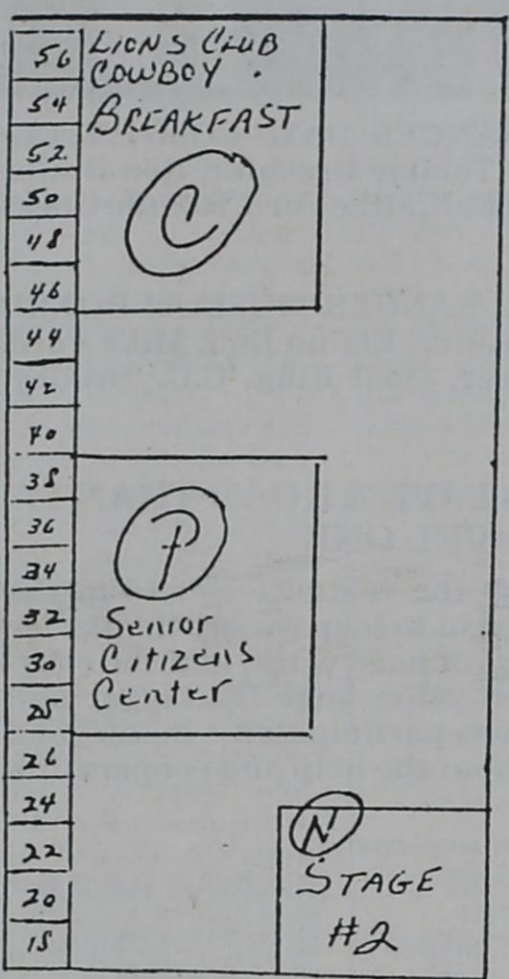 56
54
52
50
48
46
44
42
40
38
36
34
32
30
28
26
24
22
20
18
LIONS CLUB
COWBOY
BREAKFAST
C
P
Senior
Citizens
Center
N
STAGE
#2